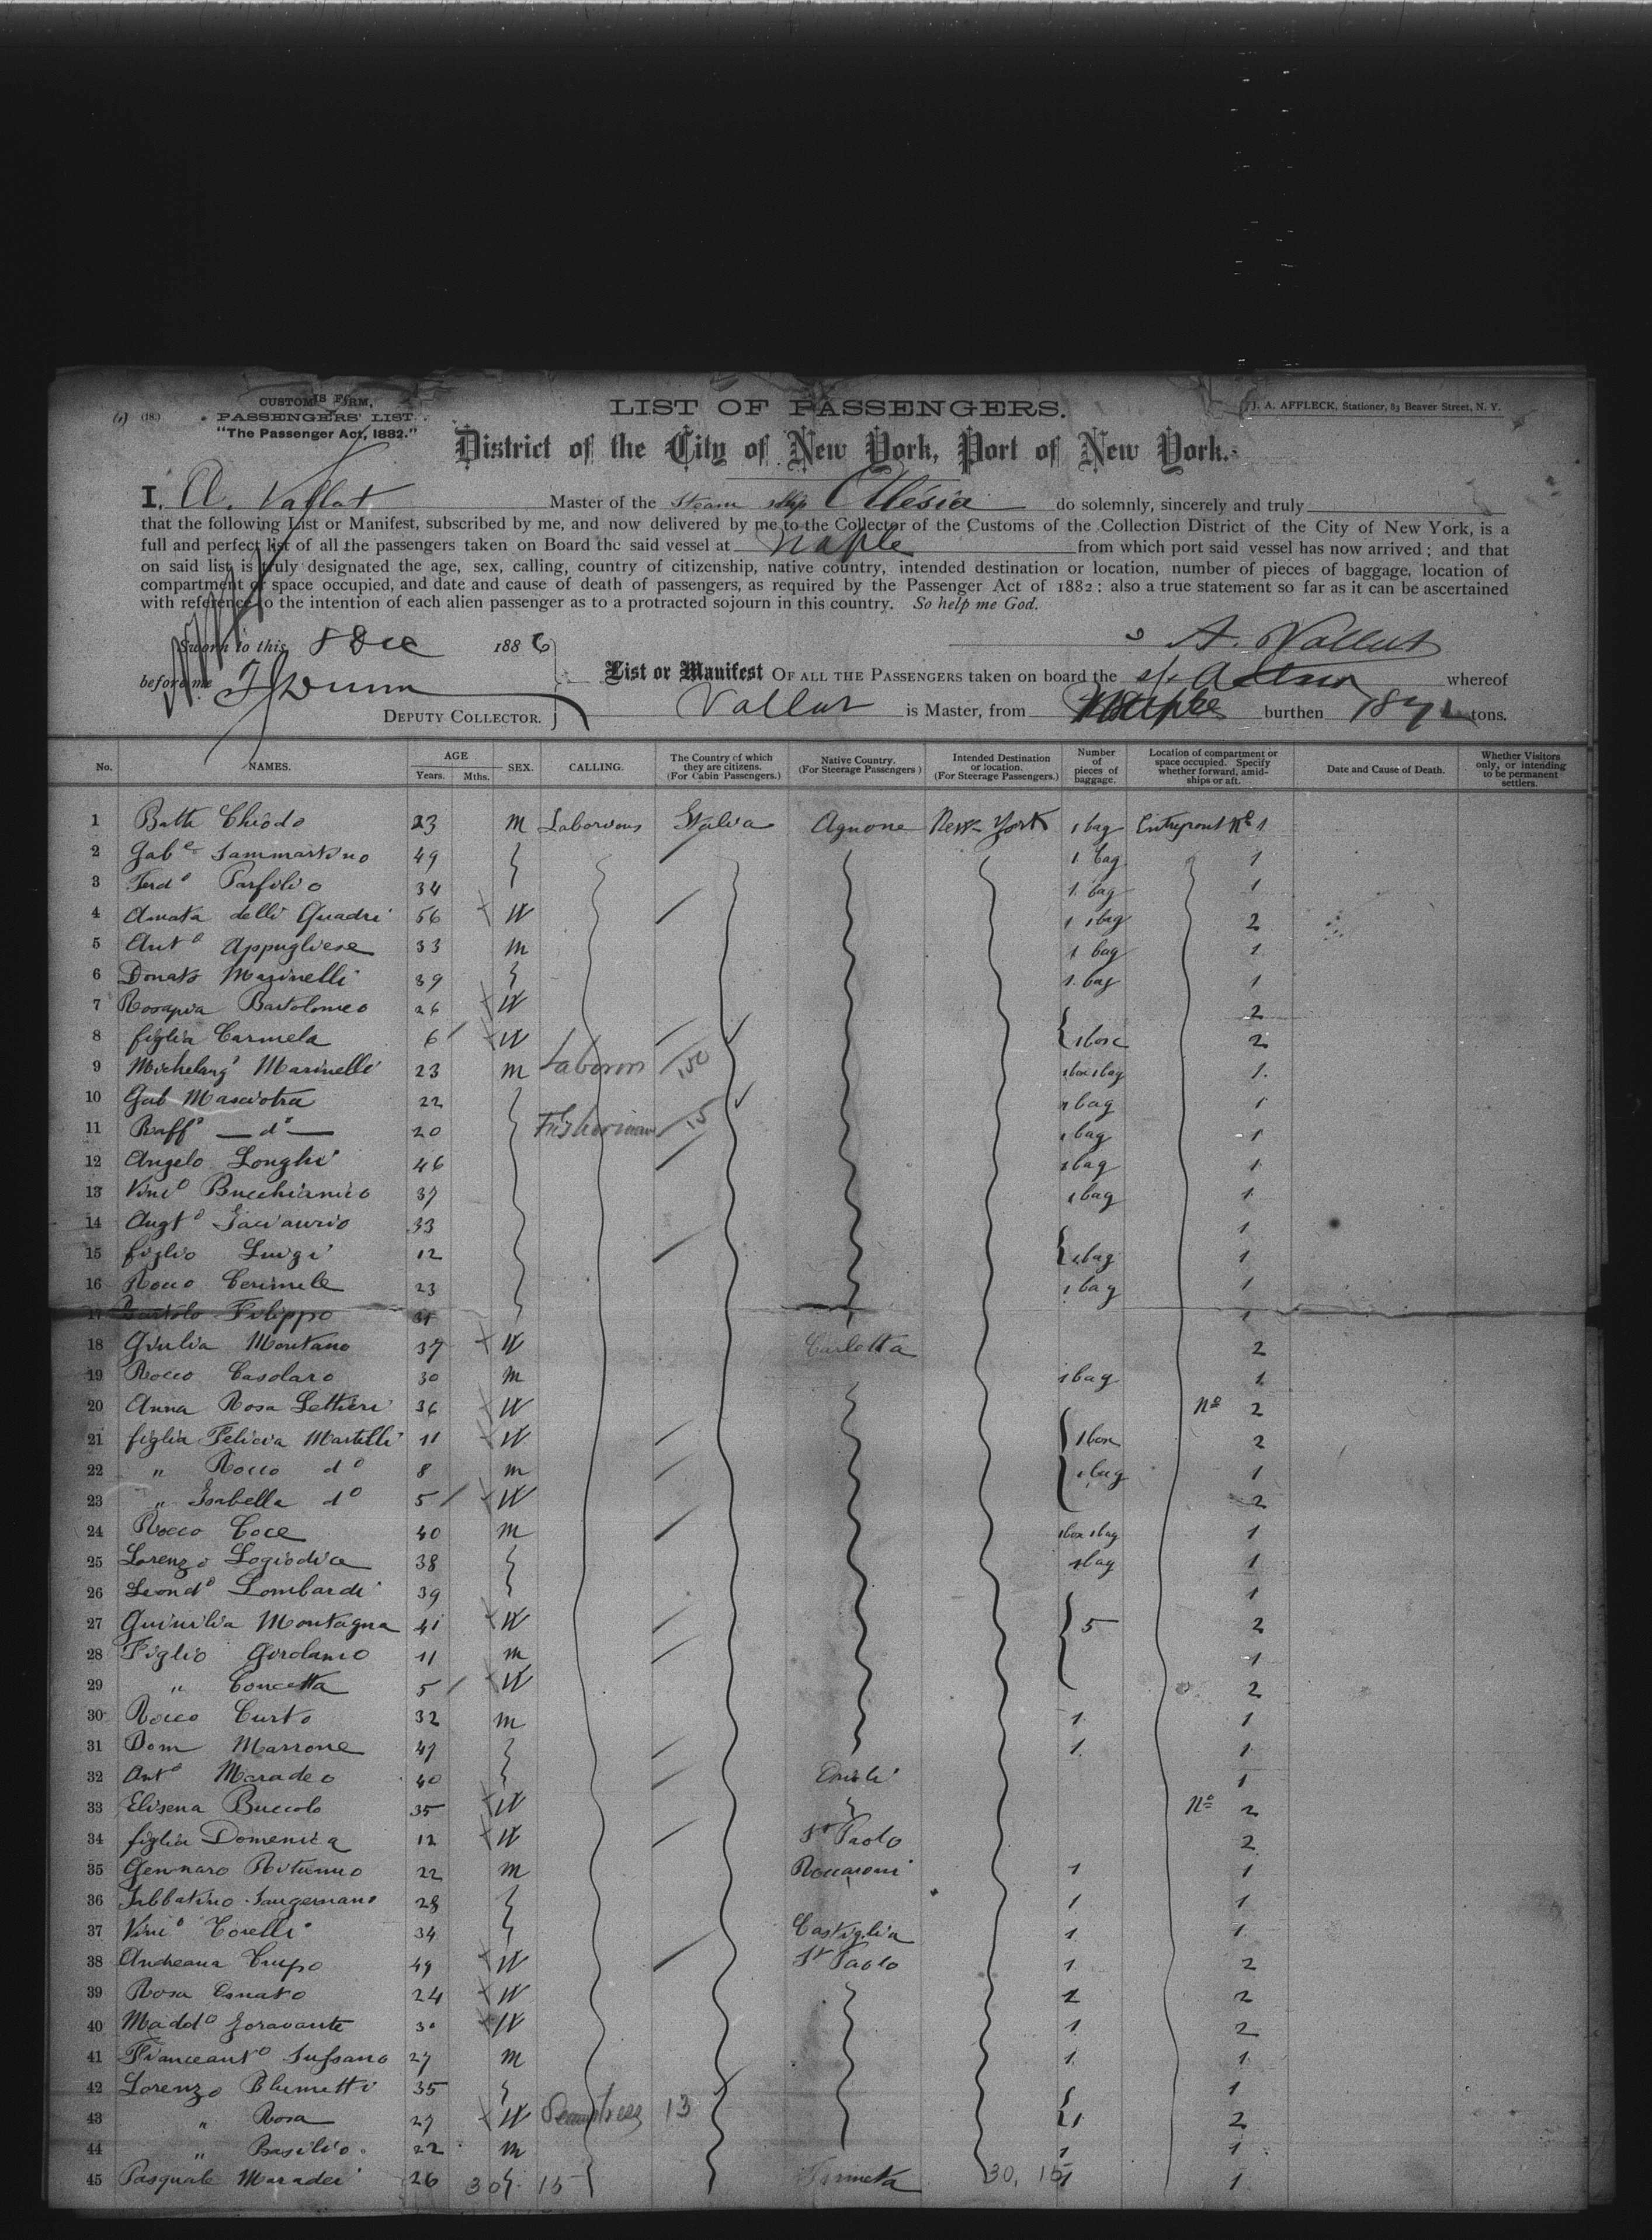 CUSTOMS FORM,
PASSENGERS' LIST.
"The Passenger Act, 1882."
LIST OF PASSENGERS.
J. A. AFFLECK, Stationer, 83 Beaver Street, N. Y.
District of the City of New York, Port of New York.
I, A. Vallat Master of the Steam ship Alésia do solemnly, sincerely and truly
that the following List or Manifest, subscribed by me, and now delivered by me to the Collector of the Customs of the Collection District of the City of New York, is a
full and perfect list of all the passengers taken on Board the said vessel at Naple from which port said vessel has now arrived; and that
on said list is truly designated the age, sex, calling, country of citizenship, native country, intended destination or location, number of pieces of baggage, location of
compartment or space occupied, and date and cause of death of passengers, as required by the Passenger Act of 1882: also a true statement so far as it can be ascertained
with reference to the intention of each alien passenger as to a protracted sojourn in this country. So help me God.
Sworn to this 8 Dec 1886 A. Vallat
before me
DEPUTY COLLECTOR.
List or Manifest OF ALL THE PASSENGERS taken on board the whereof
Vallat is Master, from Naples burthen tons.
No. NAMES. AGE Years. Mths. SEX. CALLING. The Country of which they are citizens. (For Cabin Passengers.) Native Country. (For Steerage Passengers) Intended Destination or location. (For Steerage Passengers.) Number of pieces of baggage. Location of compartment or space occupied. Specify whether forward, amidships or aft. Date and Cause of Death. Whether Visitors only, or intending to be permanent settlers.
1 Batta Chiodo 23 M Italia Agnone New-York 1 bag Entrepont Nº 1
2 Gabe Sammartino 49 1 bag 1
3 Ferdo Porfilio 34 1 bag 1
4 Amata delli Quadri 56 W 1 bag 2
5 Anto Appugliese 33 M 1 bag 1
6 Donato Marinelli 39 1 bag 1
7 Rosapia Bartolomeo 26 W 2
8 figlia Carmela 6 W 1 box 2
9 Michelango Marinelli 23 M 1 box 1 bag 1
10 Gab Masciotra 22 1 bag 1
11 Raffo — do — 20 Fisherman 15 1 bag 1
12 Angelo Longhi 46 1 bag 1
13 Vinco Bucchianico 37 1 bag 1
14 Augto 33 1
15 figlio Luigi 12 1 bag 1
16 Rocco Cerimele 23 1 bag 1
17 Filippo 1
18 Giulia Montano 37 W Carlotta 2
19 Rocco Casolaro 30 M 1 bag 1
20 Anna Rosa Lettieri 36 W Nº 2
21 figlia Felicia Martelli 11 W 1 box 2
22 " Rocco do 8 M 1 bag 1
23 " Isabella do 5 W 2
24 Rocco Coce 40 M 1 box 1 bag 1
25 Lorenzo Logiodice 38 1 bag 1
26 Leondo Lombardi 39 1
27 Montagna 41 W 5 2
28 Figlio Girolamo 11 M 1
29 " Concetta 5 W 2
30 Rocco Curto 32 M 1 1
31 Dom Marrone 47 1 1
32 Anto Maradeo 40 1
33 Elisena Buccolo 35 W Nº 2
34 figlia Domenica 12 W St Paolo 2
35 Gennaro 22 M 1 1
36 Sabbatino Sangermano 28 1 1
37 Vinco Torelli 34 Castiglia 1 1
38 Andreana Crupo 49 W St Paolo 1 2
39 Rosa Donato 24 W 1 2
40 Maddo Foravante 30 W 1 2
41 Franceanto 27 M 1 1
42 Lorenzo Blumetti 35 1
43 " Rosa 27 W Seamstress 13 1 2
44 " Basilio 22 M 1 1
45 Pasquale Maradei 26 30 15 30, 15 1 1